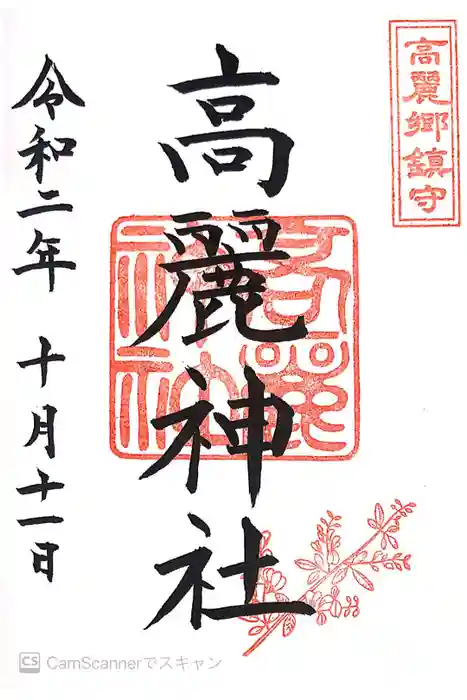 高麗郷鎮守
高麗神社
令和二年 十月十一日
高麗神社
CS CamScannerでスキャン